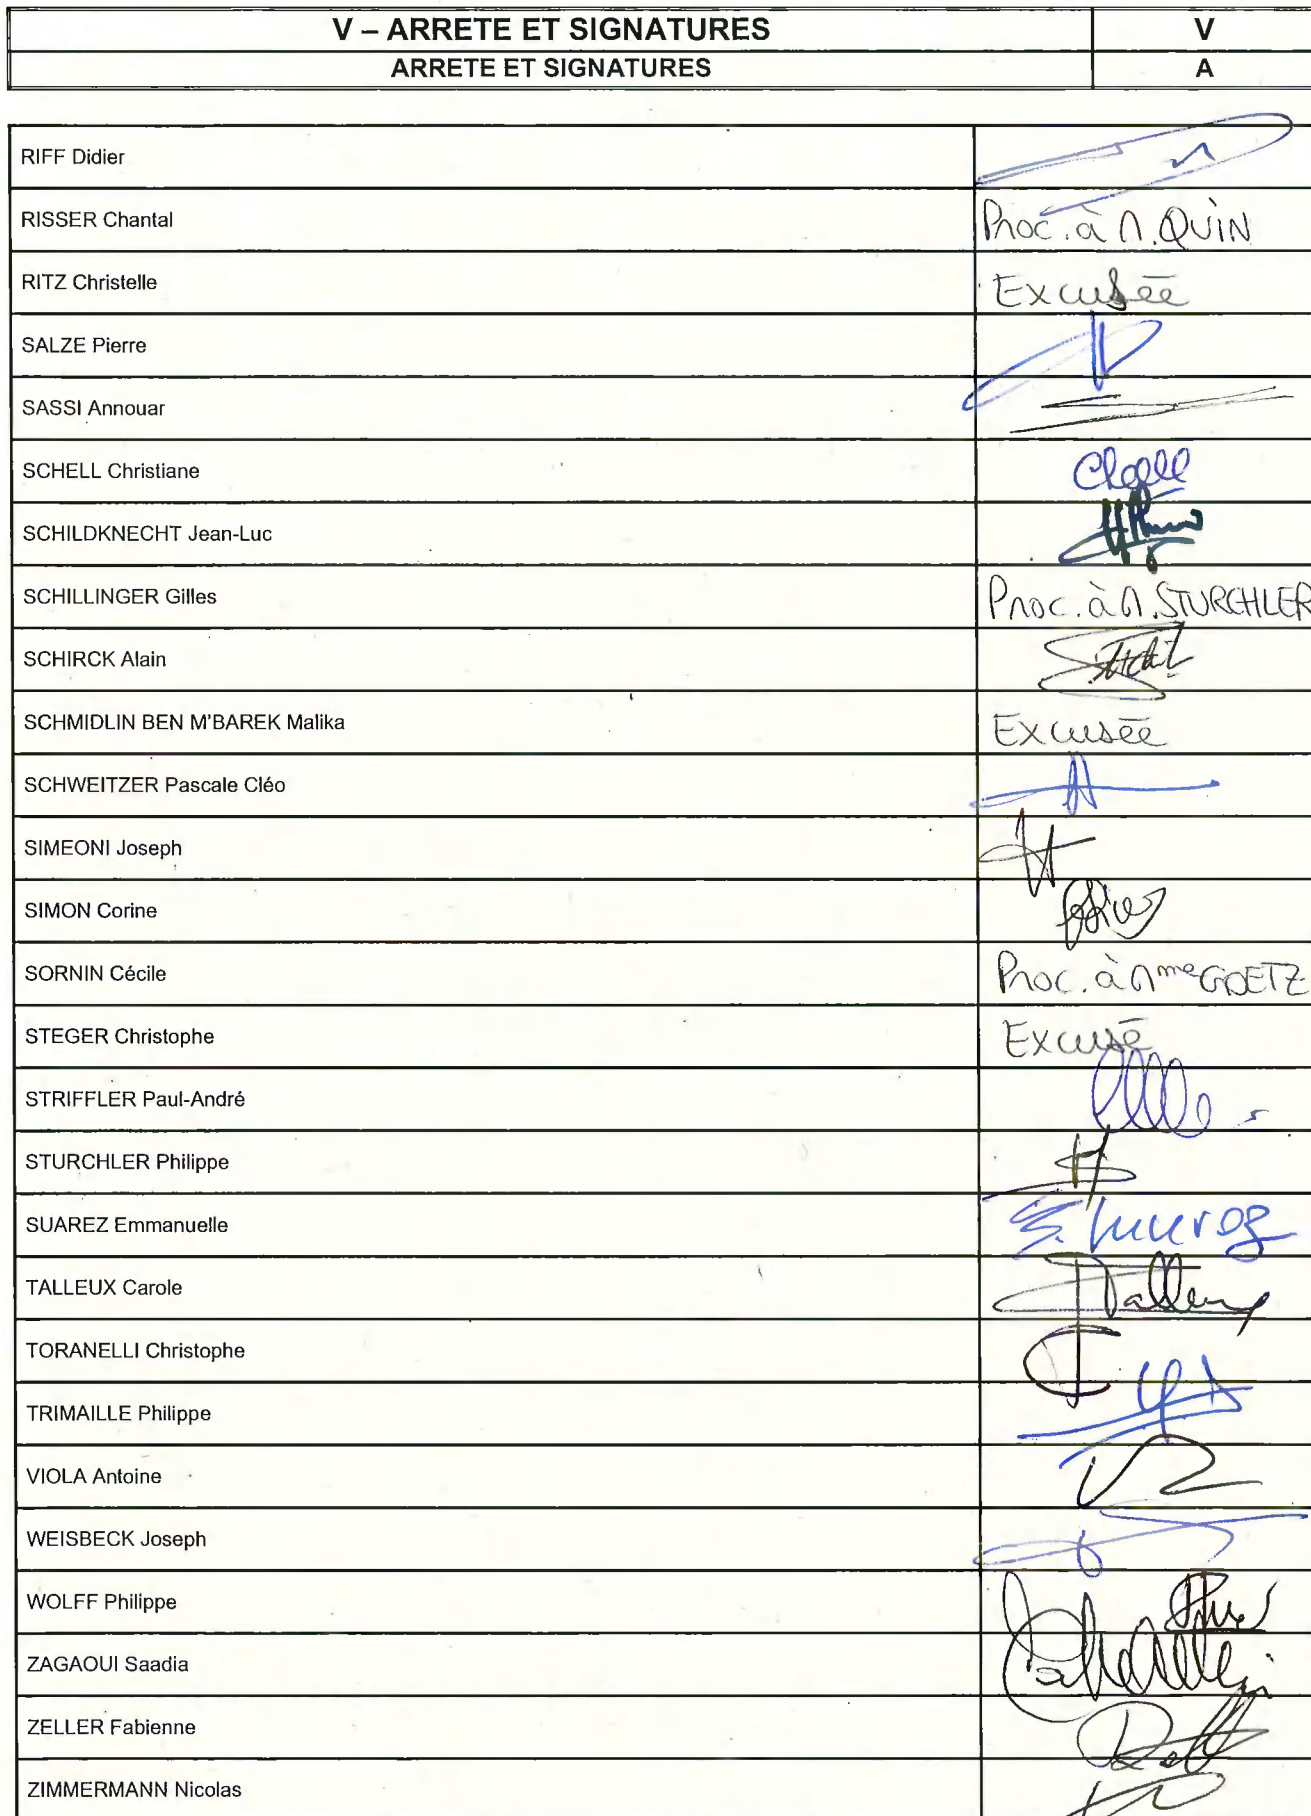 V – ARRETE ET SIGNATURES V
ARRETE ET SIGNATURES A
RIFF Didier
RISSER Chantal Proc. à M. QUIN
RITZ Christelle Excusée
SALZE Pierre
SASSI Annouar
SCHELL Christiane
SCHILDKNECHT Jean-Luc
SCHILLINGER Gilles Proc. à M. STURCHLER
SCHIRCK Alain
SCHMIDLIN BEN M'BAREK Malika Excusée
SCHWEITZER Pascale Cléo
SIMEONI Joseph
SIMON Corine
SORNIN Cécile Proc. à Mme GOETZ
STEGER Christophe Excusé
STRIFFLER Paul-André
STURCHLER Philippe
SUAREZ Emmanuelle
TALLEUX Carole Talleux
TORANELLI Christophe
TRIMAILLE Philippe
VIOLA Antoine
WEISBECK Joseph
WOLFF Philippe
ZAGAOUI Saadia
ZELLER Fabienne
ZIMMERMANN Nicolas